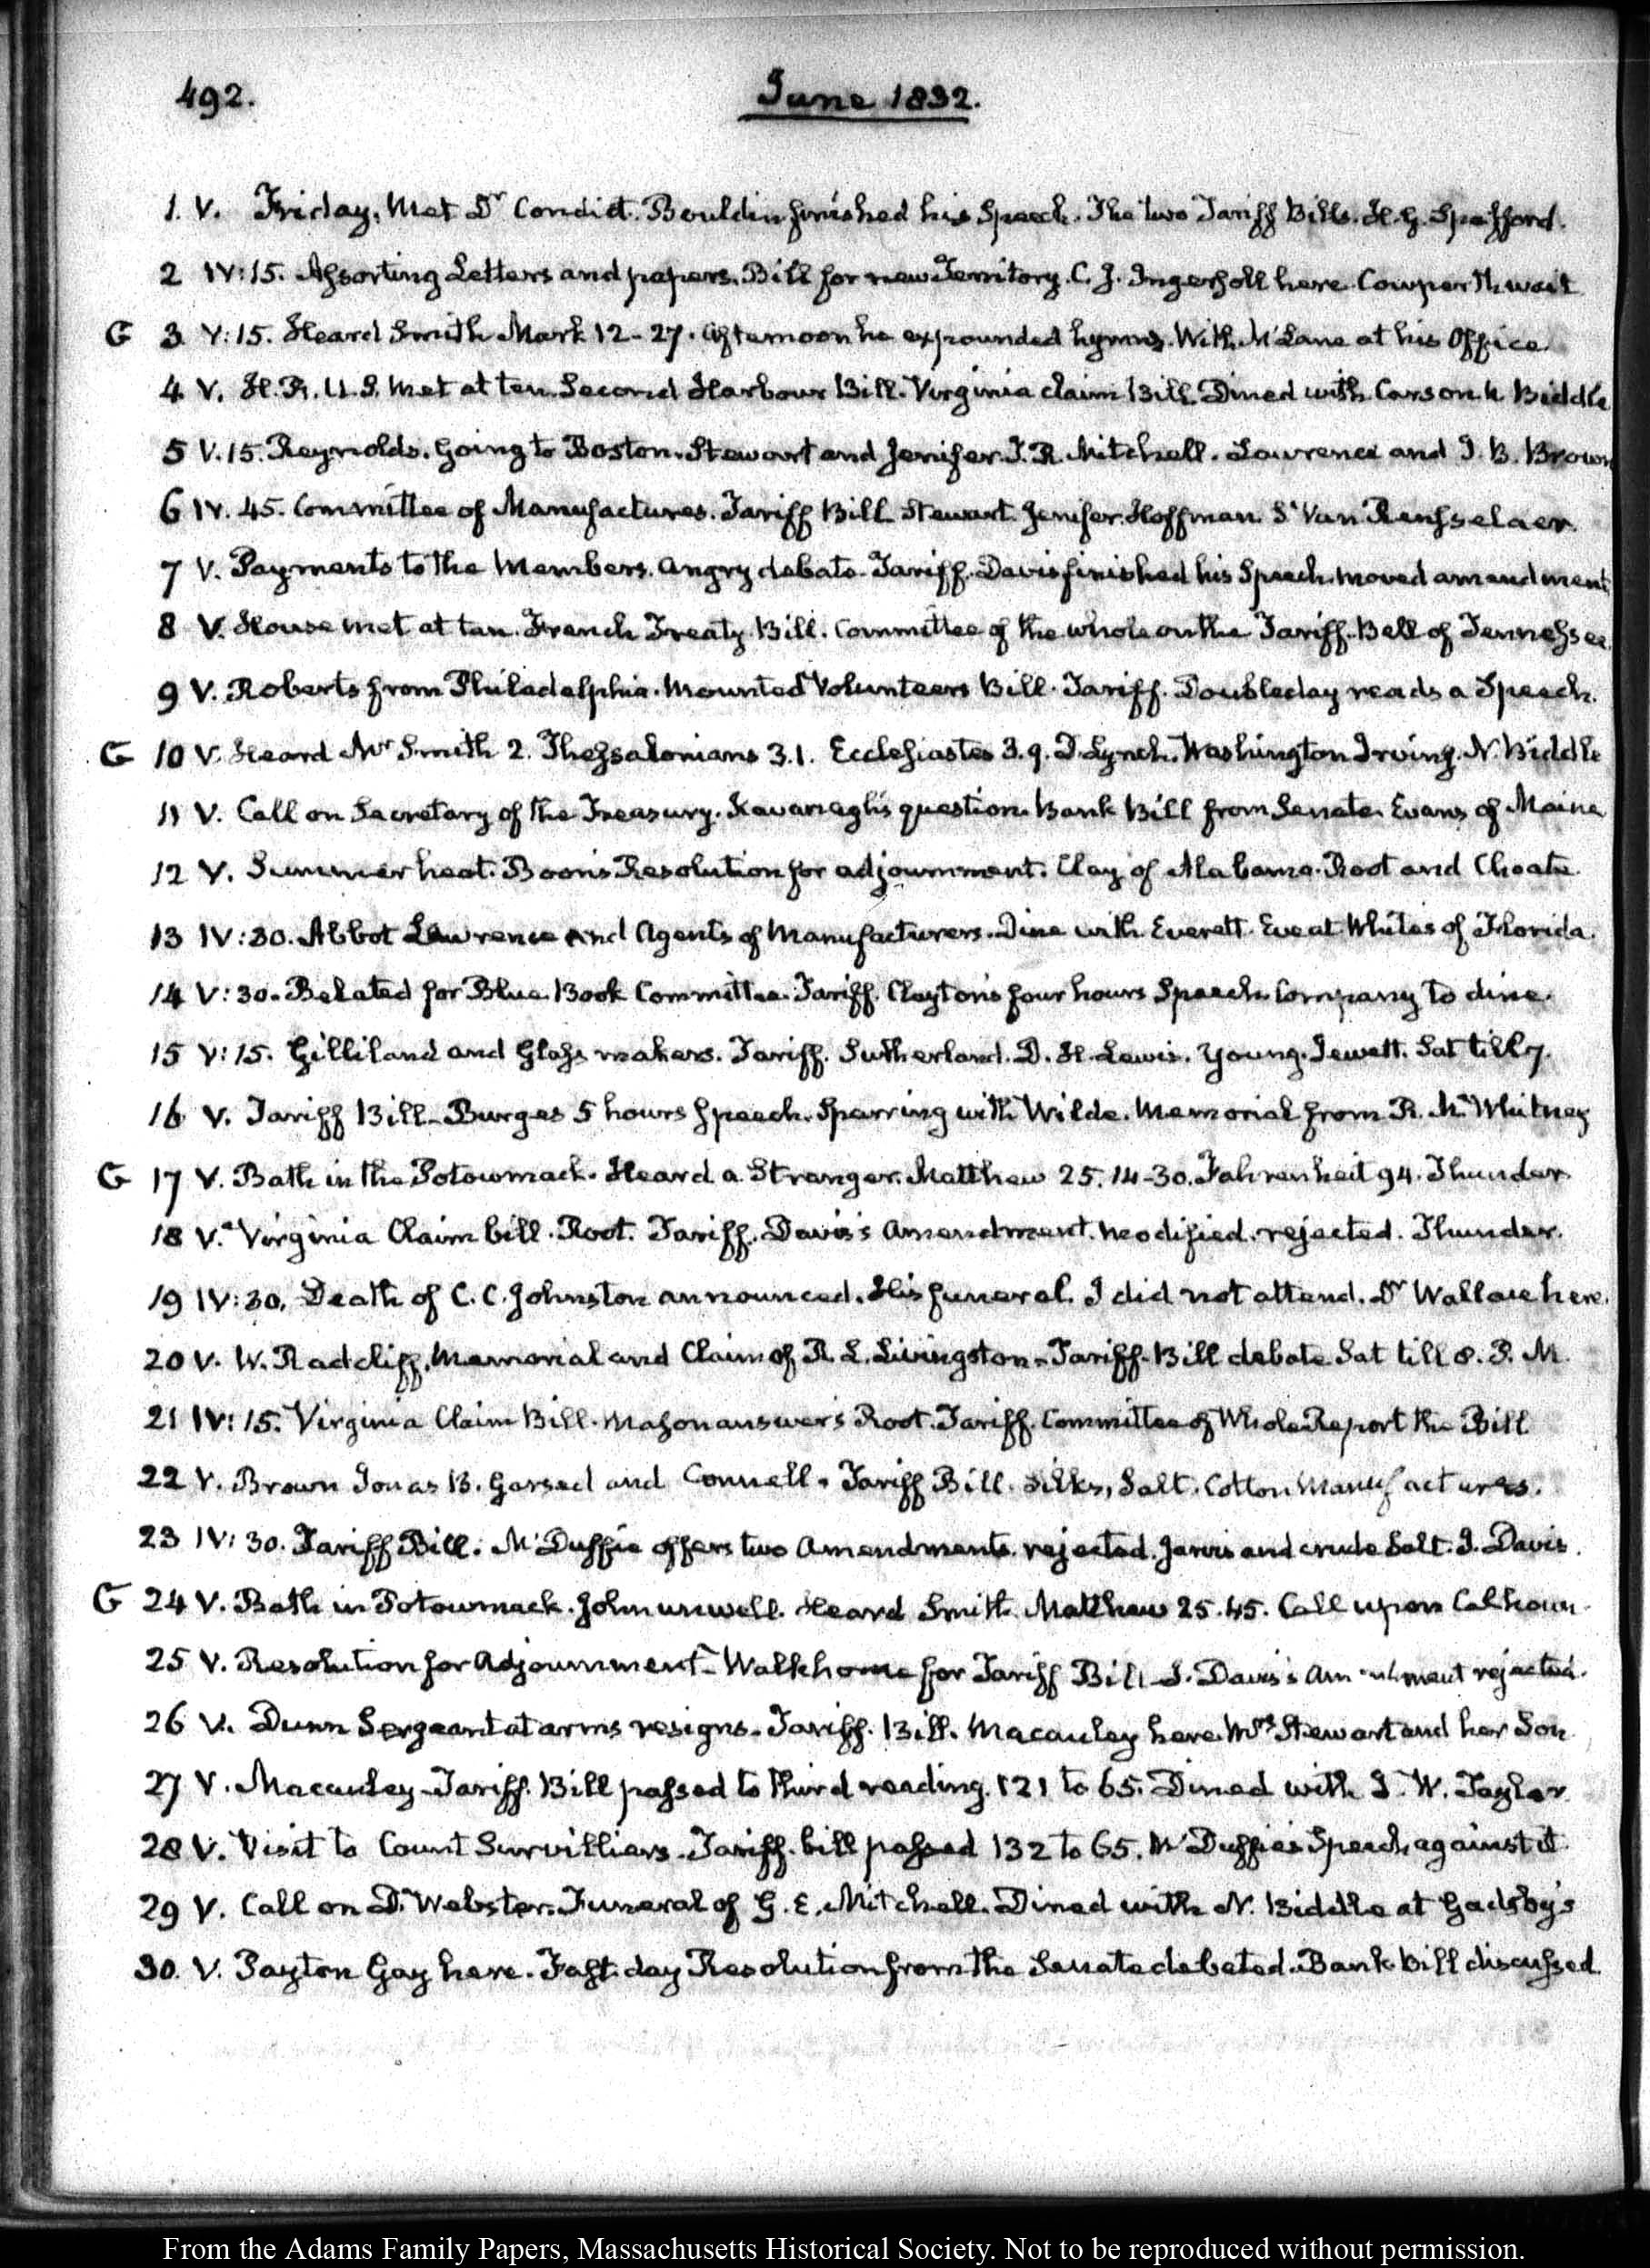 492.
June 1832.
1. V. Friday. Met Dr Condict. Bouldin finished his Speech. The two Tariff Bills. H. G. Spafford.
2 IV:15. Assorting Letters and papers. Bill for new Territory. C. J. Ingersoll here. Cowperthwait
G 3 V:15. Heard Smith Mark 12-27. afternoon he expounded hymns. With McLane at his Office
4 V. H. R. U. S. met at ten. Second Harbour Bill. Virginia claim Bill. Dined with Carson Biddle
5 V.15. Reynolds. Going to Boston. Stewart and Jenifer. T. R. Mitchell. Lawrence and J. B. Brown
6 IV. 45. Committee of Manufactures. Tariff Bill. Stewart. Jenifer. Hoffman. S. Van Rensselaer.
7 V. Payments to the Members. angry debate. Tariff. Davis finished his Speech. moved amendment
8 V. House met at ten. French Treaty Bill. Committee of the whole on the Tariff. Bell of Tennessee.
9 V. Roberts from Philadelphia. Mounted Volunteers Bill. Tariff. Doubleday reads a Speech.
G 10 V. Heard Mr Smith 2. Thessalonians 3.1. Ecclesiastes 3.9. D. Lynch. Washington Irving. N. Biddle
11 V. Call on Secretary of the Treasury. Kavanagh's question. Bank Bill from Senate. Evans of Maine
12 V. Summer heat. Boon's Resolution for adjournment. Clay of Alabama. Root and Choate.
13 IV:30. Abbot Lawrence and Agents of Manufacturers. Dine with Everett. Eve at White's of Florida.
14 V:30. Belated for Blue Book Committee. Tariff. Clayton's four hours Speech. Company to dine.
15 V:15. Gilliland and Glass makers. Tariff. Sutherland. D. H. Lewis. Young. Jewett. Sat till 7.
16 V. Tariff Bill. Burges 5 hours Speech. Sparring with Wilde. Memorial from R. M. Whitney
G 17 V. Bath in the Potowmack. Heard a Stranger. Matthew 25.14-30. Fahrenheit 94. Thunder
18 V. Virginia Claim bill. Root. Tariff. Davis's amendment. modified. rejected. Thunder.
19 IV:30. Death of C. C. Johnston announced. His funeral. I did not attend. Dr Wallace here.
20 V. W. Radcliff. Memorial and Claim of R. L. Livingston. Tariff Bill debate. Sat till 8. P. M.
21 IV:15. Virginia Claim Bill. Mason answers Root. Tariff. Committee of Whole Report the Bill
22 V. Brown Jonas B. Garsed and Connell. Tariff Bill. Silks, Salt. Cotton Manufactures.
23 IV:30. Tariff Bill. McDuffie offers two Amendments. rejected. Jarvis and crude Salt. J. Davis.
G 24 V. Bath in Potowmack. John unwell. Heard Smith. Matthew 25.45. Call upon Calhoun.
25 V. Resolution for Adjournment. Walk home for Tariff Bill. J. Davis's Amendment rejected.
26 V. Dunn Sergeant at arms resigns. Tariff. Bill. Macauley here. Mrs Stewart and her Son.
27 V. Macauley. Tariff. Bill passed to third reading. 121 to 65. Dined with J. W. Taylor.
28 V. Visit to Count Survilliers. Tariff. bill passed 132 to 65. McDuffie's Speech against it
29 V. Call on D. Webster. Funeral of G. E. Mitchell. Dined with N. Biddle at Gadsby's
30. V. Payton Gay here. Fast. day Resolution from the Senate debated. Bank Bill discussed.
From the Adams Family Papers, Massachusetts Historical Society. Not to be reproduced without permission.